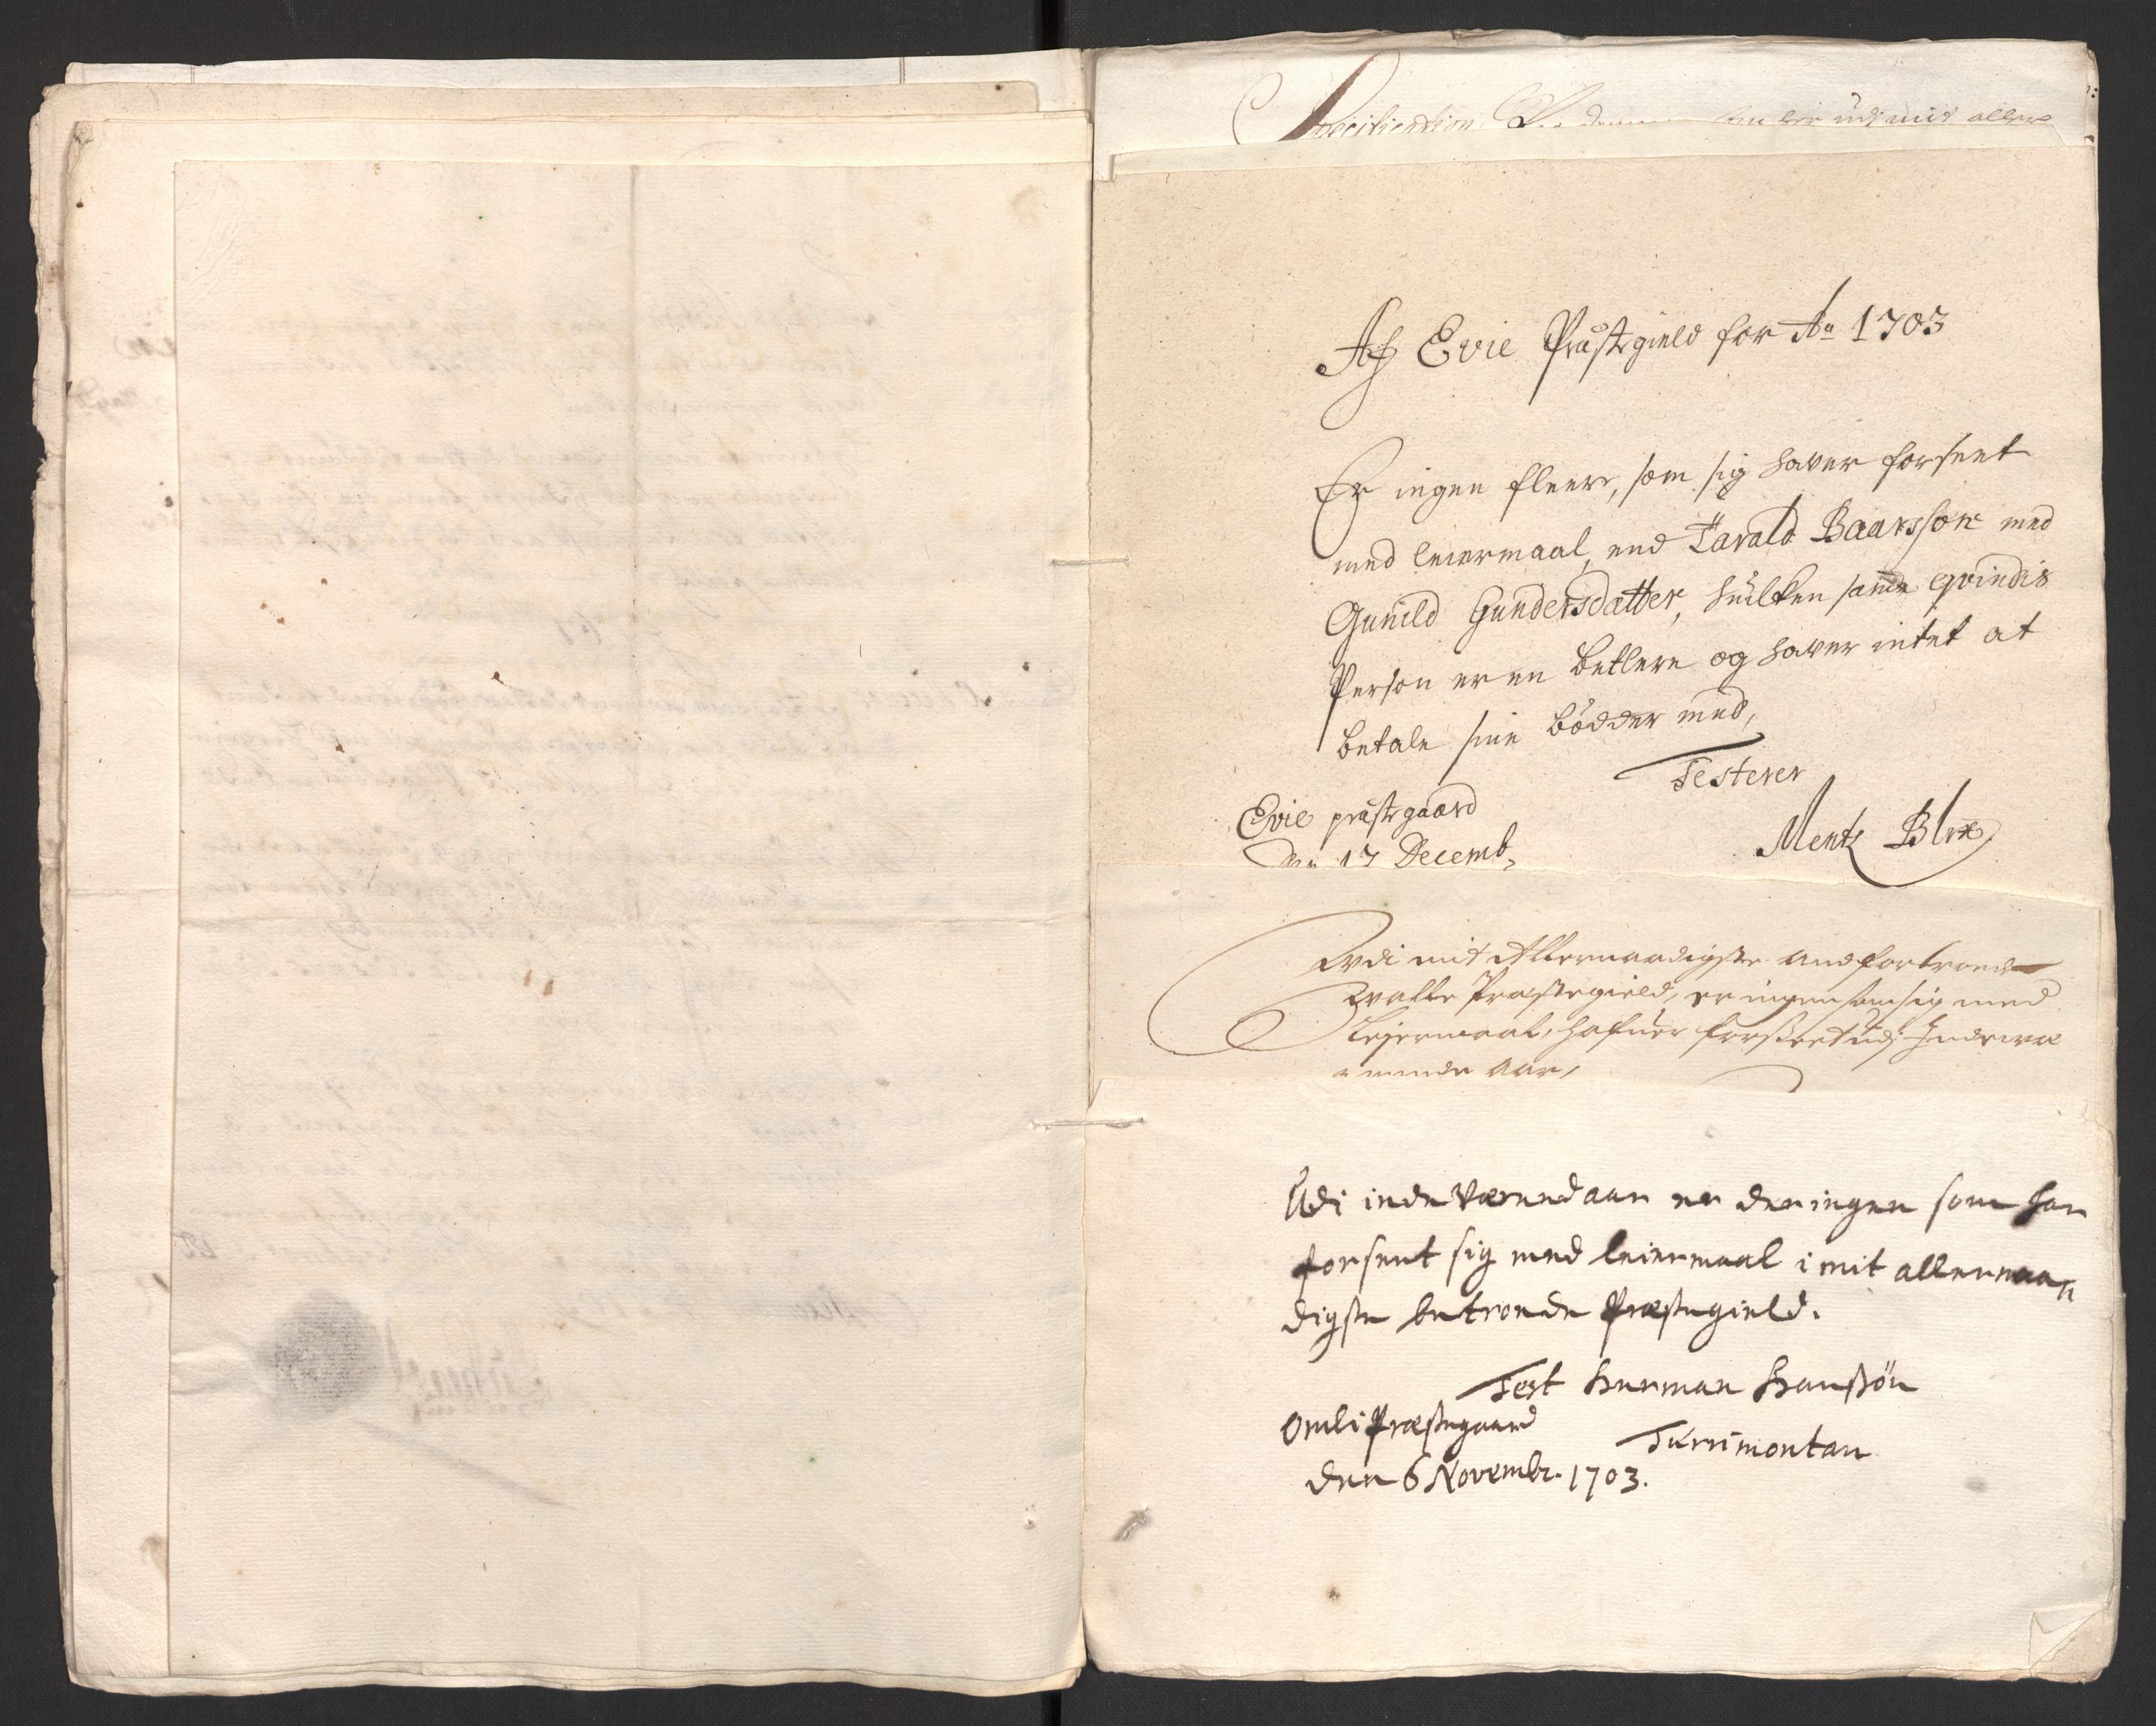 Specification udi mit aller
Af Evie Præstegield for Ao 1703
Er ingen fleere, som sig haver forseet
med leiermaal, end Tarald Baarsson med
Gunild Gundersdatter, huilken samme qvindis
Person er en betlere og haver intet at
betale sine bödder med,
Testerer
Evie præstgaard
den 17 Decemb,
Mentz
Udi mit Allernaadigste anfortroede
Walle Præstegield, er ingen som sig med
Lejermaal, hafuer forseet udj Indevæ
rende Aar,
Udi indeværend aar er der ingen som har
forseet sig med leiermaal i mit allernaa
digste betroede Præstegield.
Test Herman Hanssön
Omli Præstegaard
Turrimontan
den 6 Novembr. 1703.